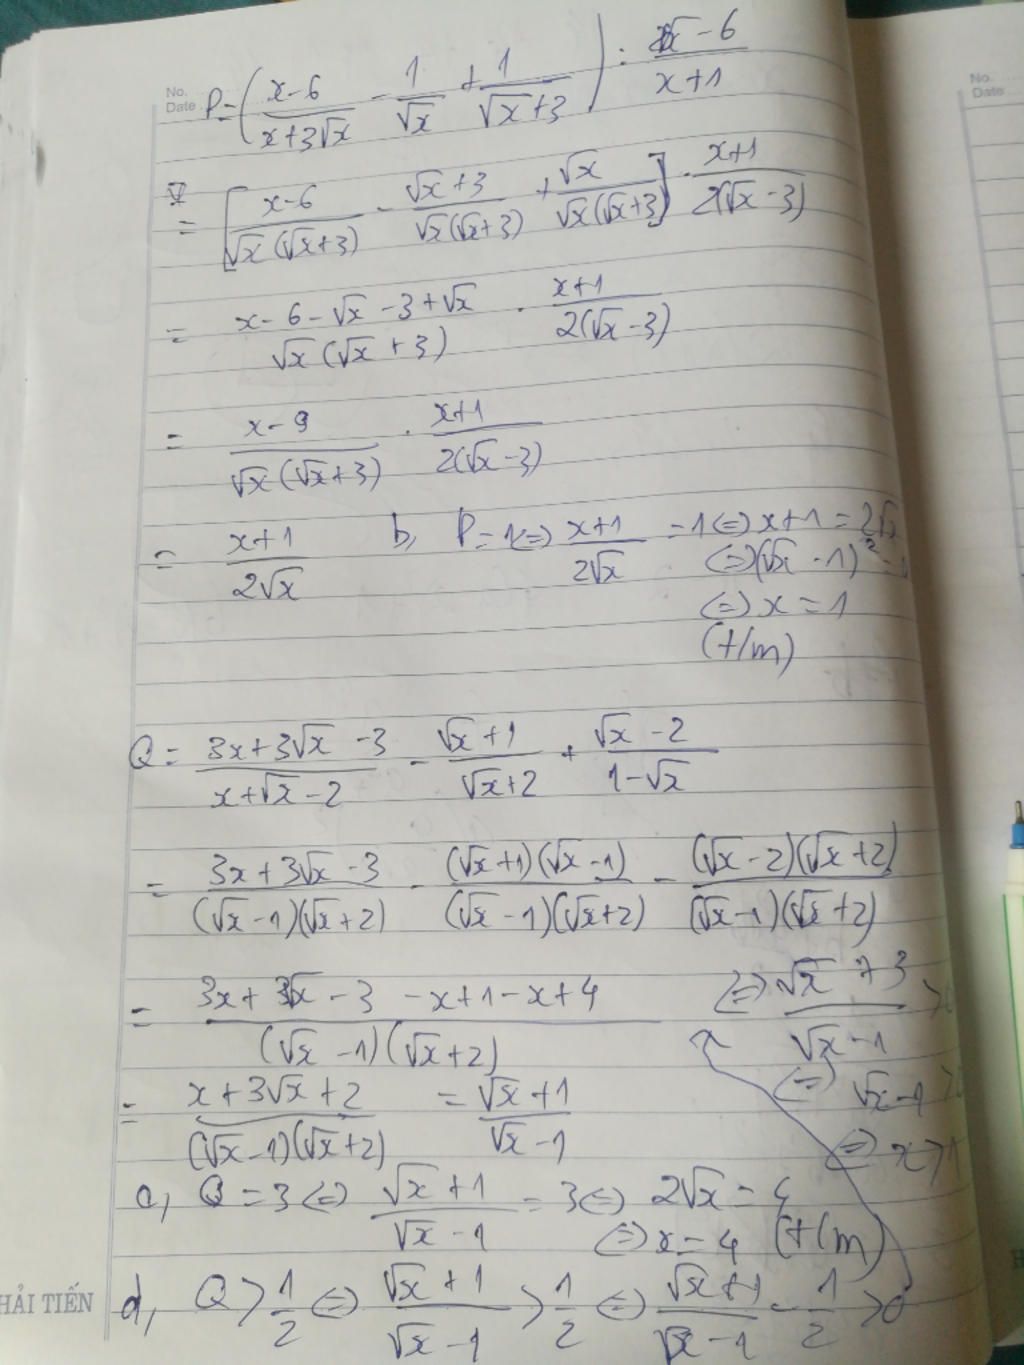 No.
Date
No.
Date
P = ( (x-6)/(x+3√x) - 1/√x + 1/(√x+3) ) : (2√x-6)/(x+1)
= [ (x-6)/(√x(√x+3)) - (√x+3)/(√x(√x+3)) + √x/(√x(√x+3)) ] . (x+1)/(2(√x-3))
= (x-6-√x-3+√x)/(√x(√x+3)) . (x+1)/(2(√x-3))
= (x-9)/(√x(√x+3)) . (x+1)/(2(√x-3))
= (x+1)/(2√x)
b, P=1 <=> (x+1)/(2√x) = 1 <=> x+1 = 2√x
<=> (√x-1)² =
<=> x = 1
(t/m)
Q = (3x+3√x-3)/(x+√x-2) - (√x+1)/(√x+2) + (√x-2)/(1-√x)
= (3x+3√x-3)/((√x-1)(√x+2)) - ((√x+1)(√x-1))/((√x-1)(√x+2)) - ((√x-2)(√x+2))/((√x-1)(√x+2))
= (3x+3√x-3-x+1-x+4)/((√x-1)(√x+2))
= (x+3√x+2)/((√x-1)(√x+2)) = (√x+1)/(√x-1)
c, Q = 3 <=> (√x+1)/(√x-1) = 3 <=> 2√x = 4
<=> x = 4 (t/m)
d, Q > 1/2 <=> (√x+1)/(√x-1) > 1/2 <=> (√x+1)/(√x-1) - 1/2 > 0
<=> (√x+3)/(√x-1) > 0
<=> √x-1 > 0
<=> x > 1
HẢI TIẾN